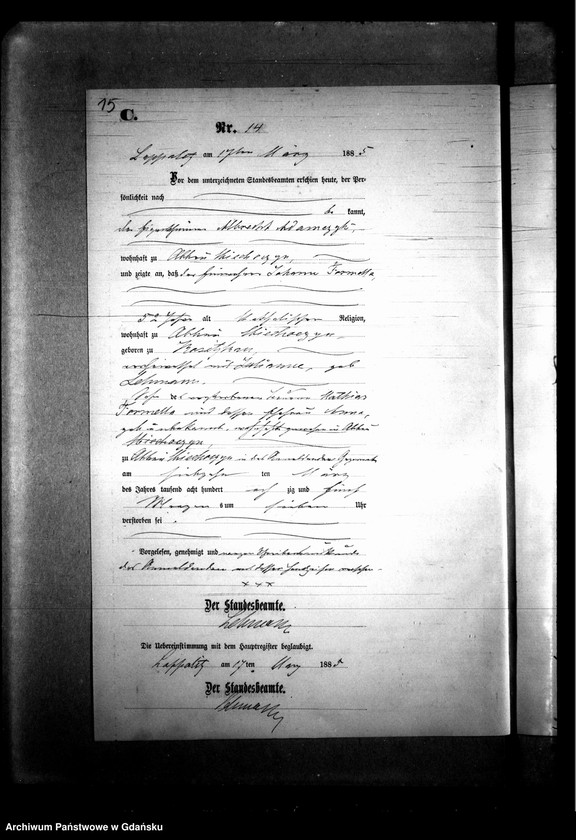 15
C.
Nr. 14
Lappalitz am 17ten März 1885
Vor dem unterzeichneten Standesbeamten erschien heute, der Per-
sönlichkeit nach
be kannt,
der Eigenthümer Albrecht Adamczyk,
wohnhaft zu Abbau
und zeigte an, daß der Einwohner Johann Formella,
52 Jahre alt Katholischer Religion,
wohnhaft zu Abbau
geboren zu
verheirathet mit Julianne, geb
Lehmann.
Sohn des verstorbenen Mathias
Formella und dessen Ehefrau Anna,
geb. unbekannt, gewesen in Abbau
zu Abbau in des Anmeldenden Gegenwart
am siebzehn ten März
des Jahres tausend acht hundert acht zig und fünf
Morgens um sieben Uhr
verstorben sei
Vorgelesen, genehmigt und wegen Schreibensunkunde
des Anmeldenden mit dessen Handzeichen versehen
+ + +
Der Standesbeamte.
Lehmann
Die Uebereinstimmung mit dem Hauptregister beglaubigt.
Lappalitz am 17ten März 1885
Der Standesbeamte.
Lehmann
Archiwum Państwowe w Gdańsku